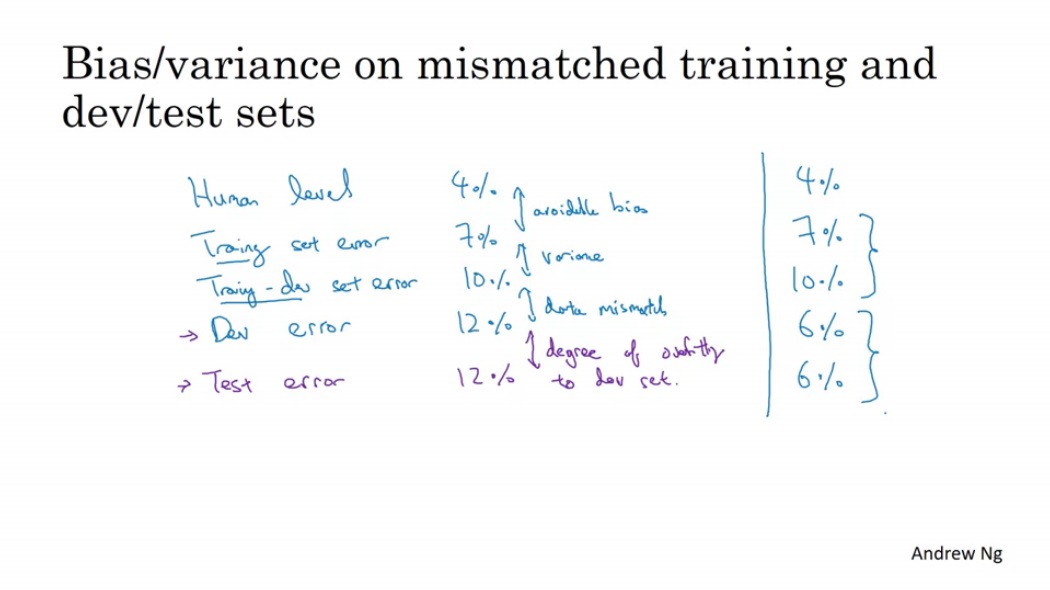 Bias/variance on mismatched training and
dev/test sets
Human level 4% 4%
avoidable bias
Traing set error 7% 7%
variance
Traing - dev set error 10% 10%
data mismatch
→ Dev error 12% 6%
degree of overfitting
→ Test error 12% to dev set. 6%
Andrew Ng